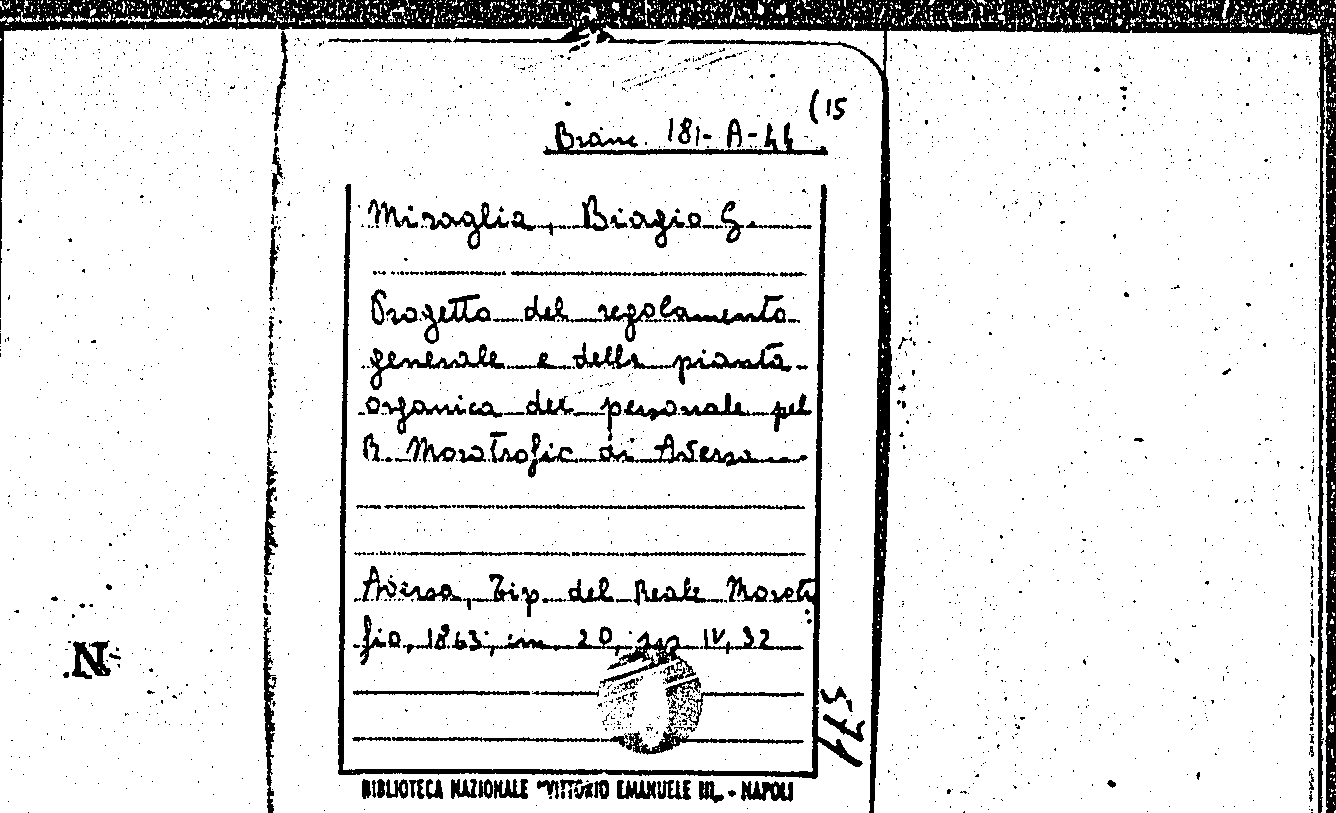 (15
Branc. 181-A-44
Miraglia, Biagio G.
Progetto del regolamento
generale e della pianta
organica del personale pel
R. Morotrofio di Aversa
Aversa, Tip. del Reale Moroti
fio, 1863; in 20; pp IV, 32
571
N
BIBLIOTECA NAZIONALE "VITTORIO EMANUELE III„ - NAPOLI